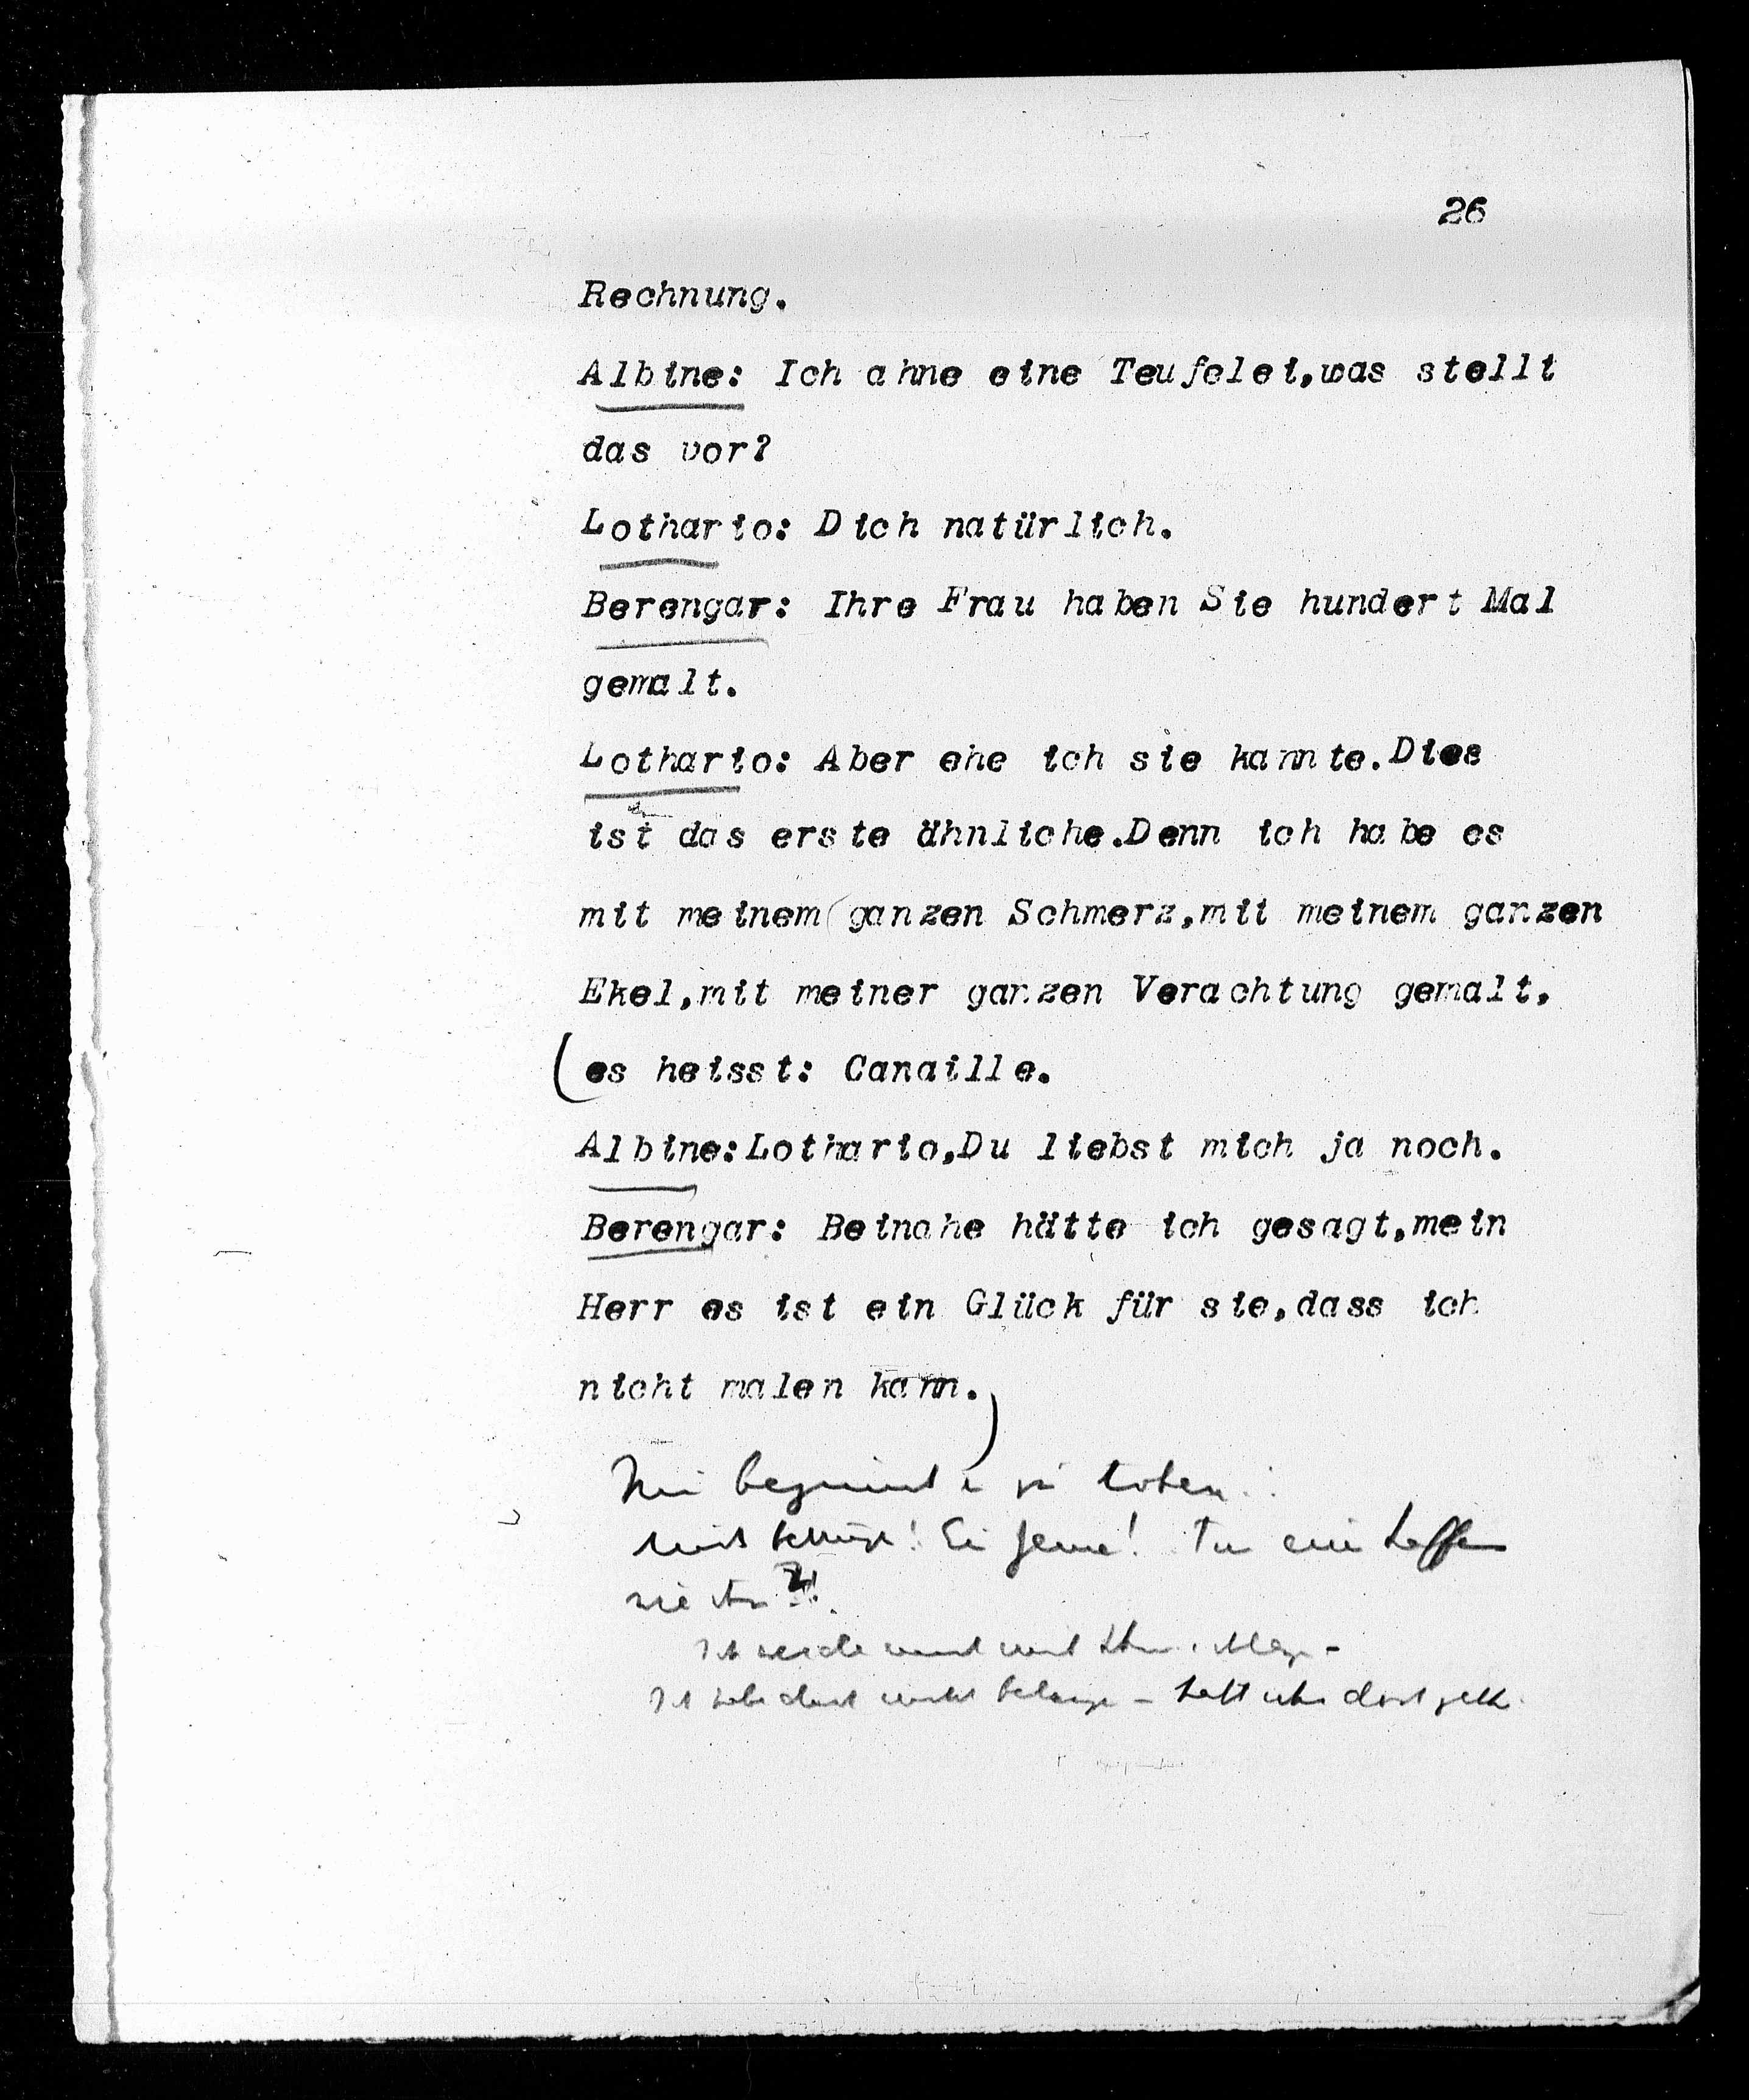 26
Rechnung.
Albine: Ich ahne eine Teufelei,was stellt
das vor?
Lothario: Dich natürlich.
Berengar: Ihre Frau haben Sie hundert Mal
gemalt.
Lothario: Aber ehe ich sie kannte.Dies
ist das erste ähnliche.Denn ich habe es
mit meinem ganzen Schmerz,mit meinem ganzen
Ekel,mit meiner ganzen Verachtung gemalt,
(es heisst: Canaille.
Albine:Lothario,Du liebst mich ja noch.
Berengar: Beinahe hätte ich gesagt,mein
Herr es ist ein Glück für sie,dass ich
nicht malen kann.)
beginnt zu toben